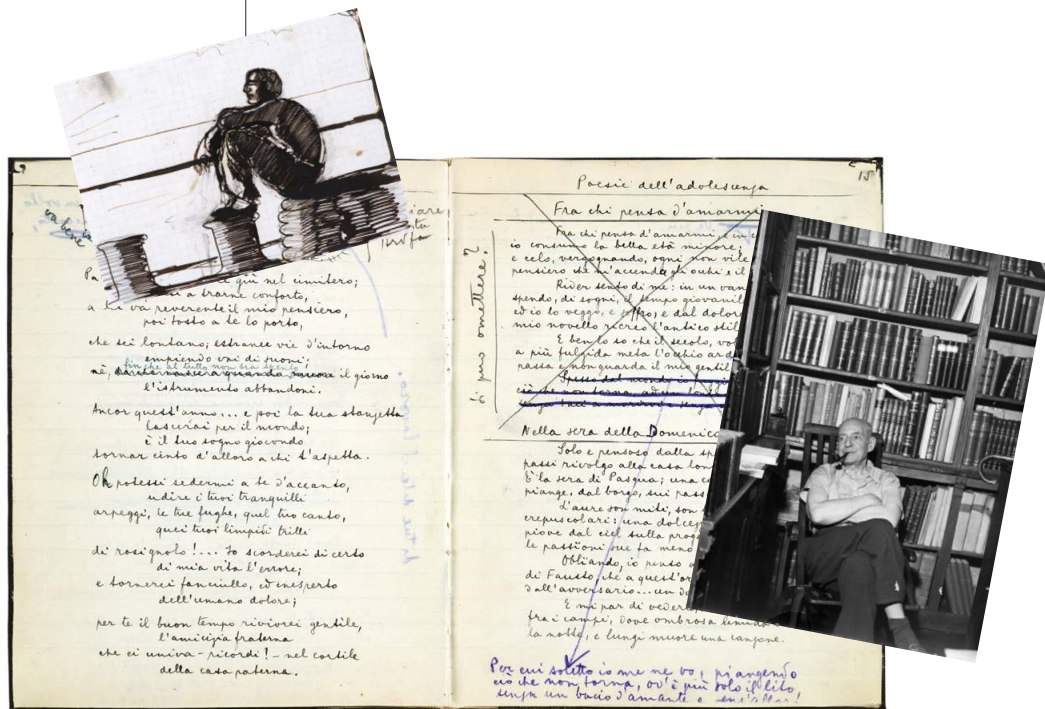 va bene
iare,
profa
Pa
e giù nel cimitero;
a trarne conforto,
a lui va reverente il mio pensiero,
poi tosto a te lo porto,
che sei lontano; estranee vie d'intorno
empiendo vai di suoni.
finché al tutto non sia spento
nè, il giorno
l'istrumento abbandoni.
Ancor quest'anno... e poi la tua stanzetta
lascerai per il mondo;
è il tuo sogno giocondo
tornar cinto d'alloro a chi t'aspetta.
Oh potessi sedermi a te d'accanto,
udire i tuoi tranquilli
arpeggi, le tue fughe, quel tuo canto,
quei tuoi limpidi trilli
di rosignolo!... Io scorderei di certo
di mia vita l'errore;
e tornerei fanciullo, ed inesperto
dell'umano dolore;
per te il buon tempo rivivrei gentile,
l'amicizia fraterna
che ci univa - ricordi! - nel cortile
della casa paterna.
15
Poesie dell'adolescenza
Fra chi pensa d'amarmi
si può omettere?
Fra chi pensa d'amarmi, e in
io consumo la bella età minore;
e celo, vergognando, ogni non vile
pensiero che m'accenda gli occhi e il
Rider sento di me: in un van
spendo, di sogni, il tempo giovanil
ed io lo veggo, e soffro; e dal dolor
mio novello ricreo l'antico stil
E ben lo so che il secolo, vol
a più fulgida meta l'occhio ard
passa e non guarda il mio gentil
Spesso dal mondo io fuggo
ciò che non torna, ad un lon
Nella sera della Domenica
Solo e pensoso dalla sp
passi rivolgo alla casa lon
È la sera di Pasqua; una c
piange, dal borgo, sui pass
L'aure son miti, son
crepuscolari: una dolce
piove dal ciel sulla prog
le passioni sue fa meno
Obliando, io penso a
di Fausto, che a quest'or
dall'avversario... un do
E mi par di vedere,
fra i campi, dove ombrosa
la notte, e lungi muore una canzone.
Per cui soletto io me ne vo, piangendo
ciò che non torna, ov'è più solo il lito
senza un bacio d'amante o